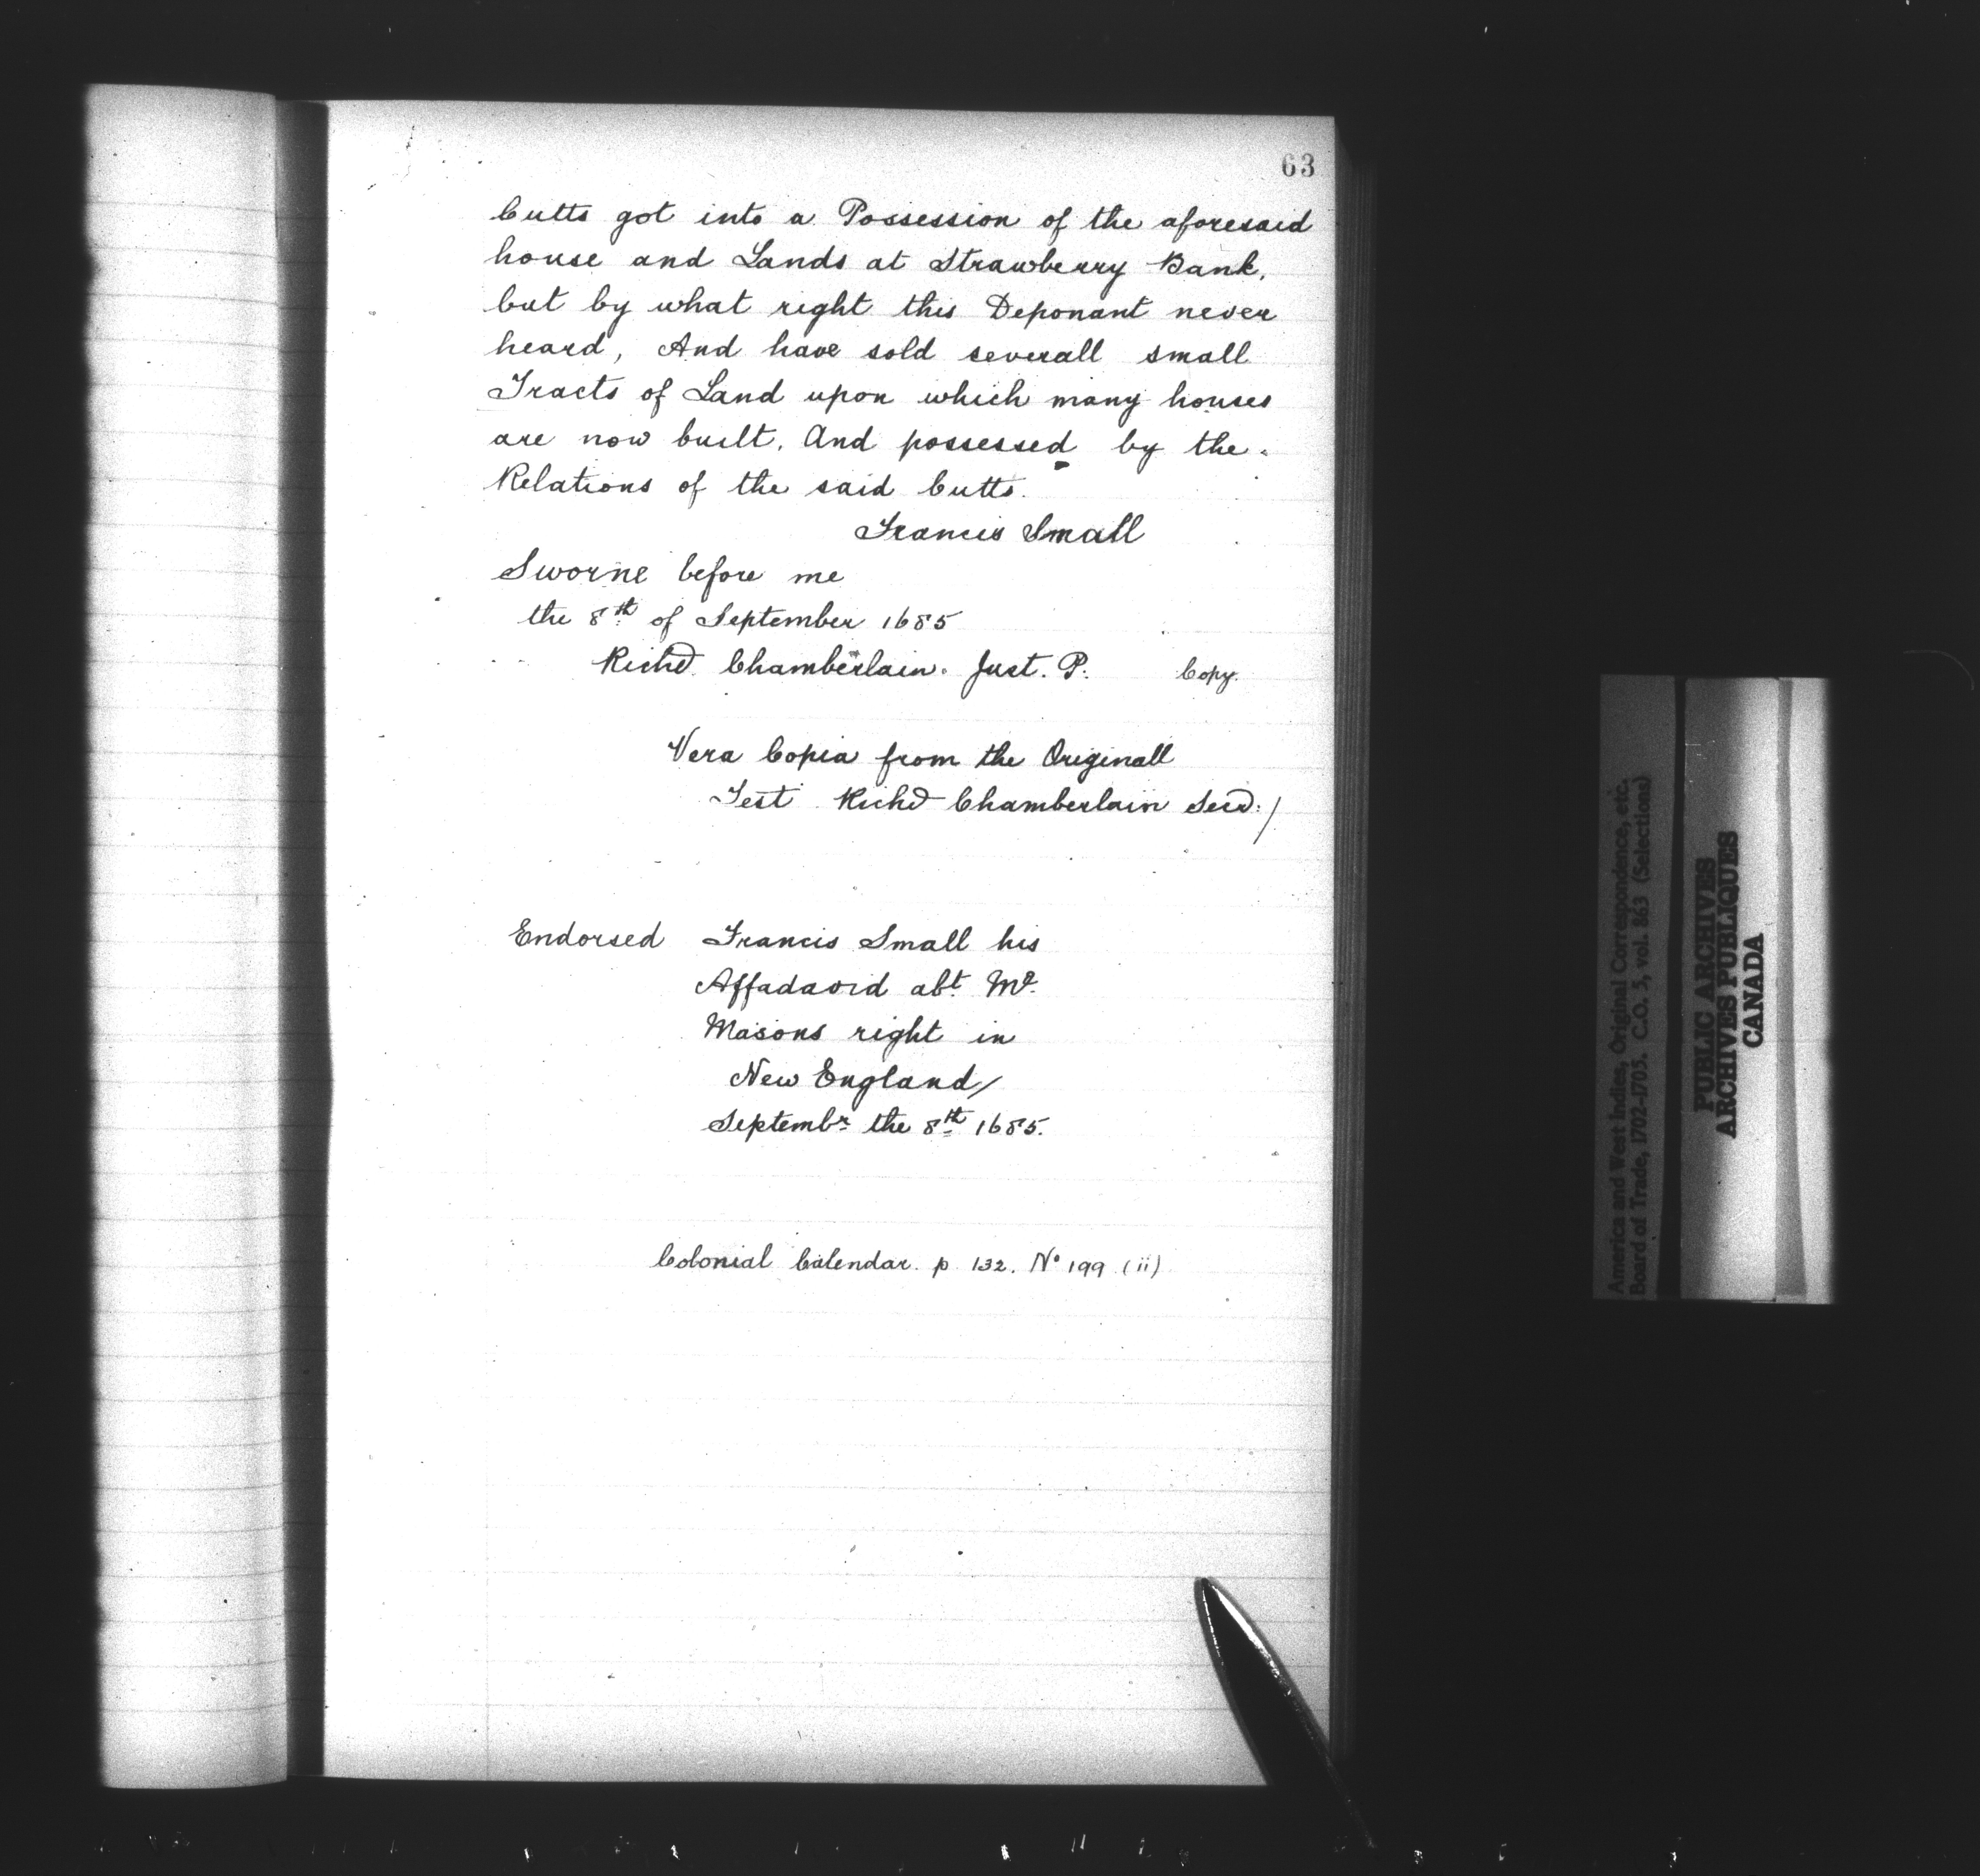 63
Cutts got into a Possession of the aforesaid
house and Lands at Strawberry Bank,
but by what right this Deponant never
heard, And have sold severall small
Tracts of Land upon which many houses
are now built. And possessed by the
Relations of the said Cutts.
Francis Small
Sworne before me
the 8th of September 1685
Richd Chamberlain. Just. P. Copy.
Vera Copia from the Originall
Test Richd Chamberlain Secd:/
Endorsed Francis Small his
Affadavid abt Mr
Masons right in
New England/
Septembr the 8th 1685.
Colonial Calendar. p 132. No 199 (ii)
America and West Indies, Original Correspondence, etc.
Board of Trade, 1702-1705. C.O. 5, vol. 863 (Selections)
PUBLIC ARCHIVES
ARCHIVES PUBLIQUES
CANADA